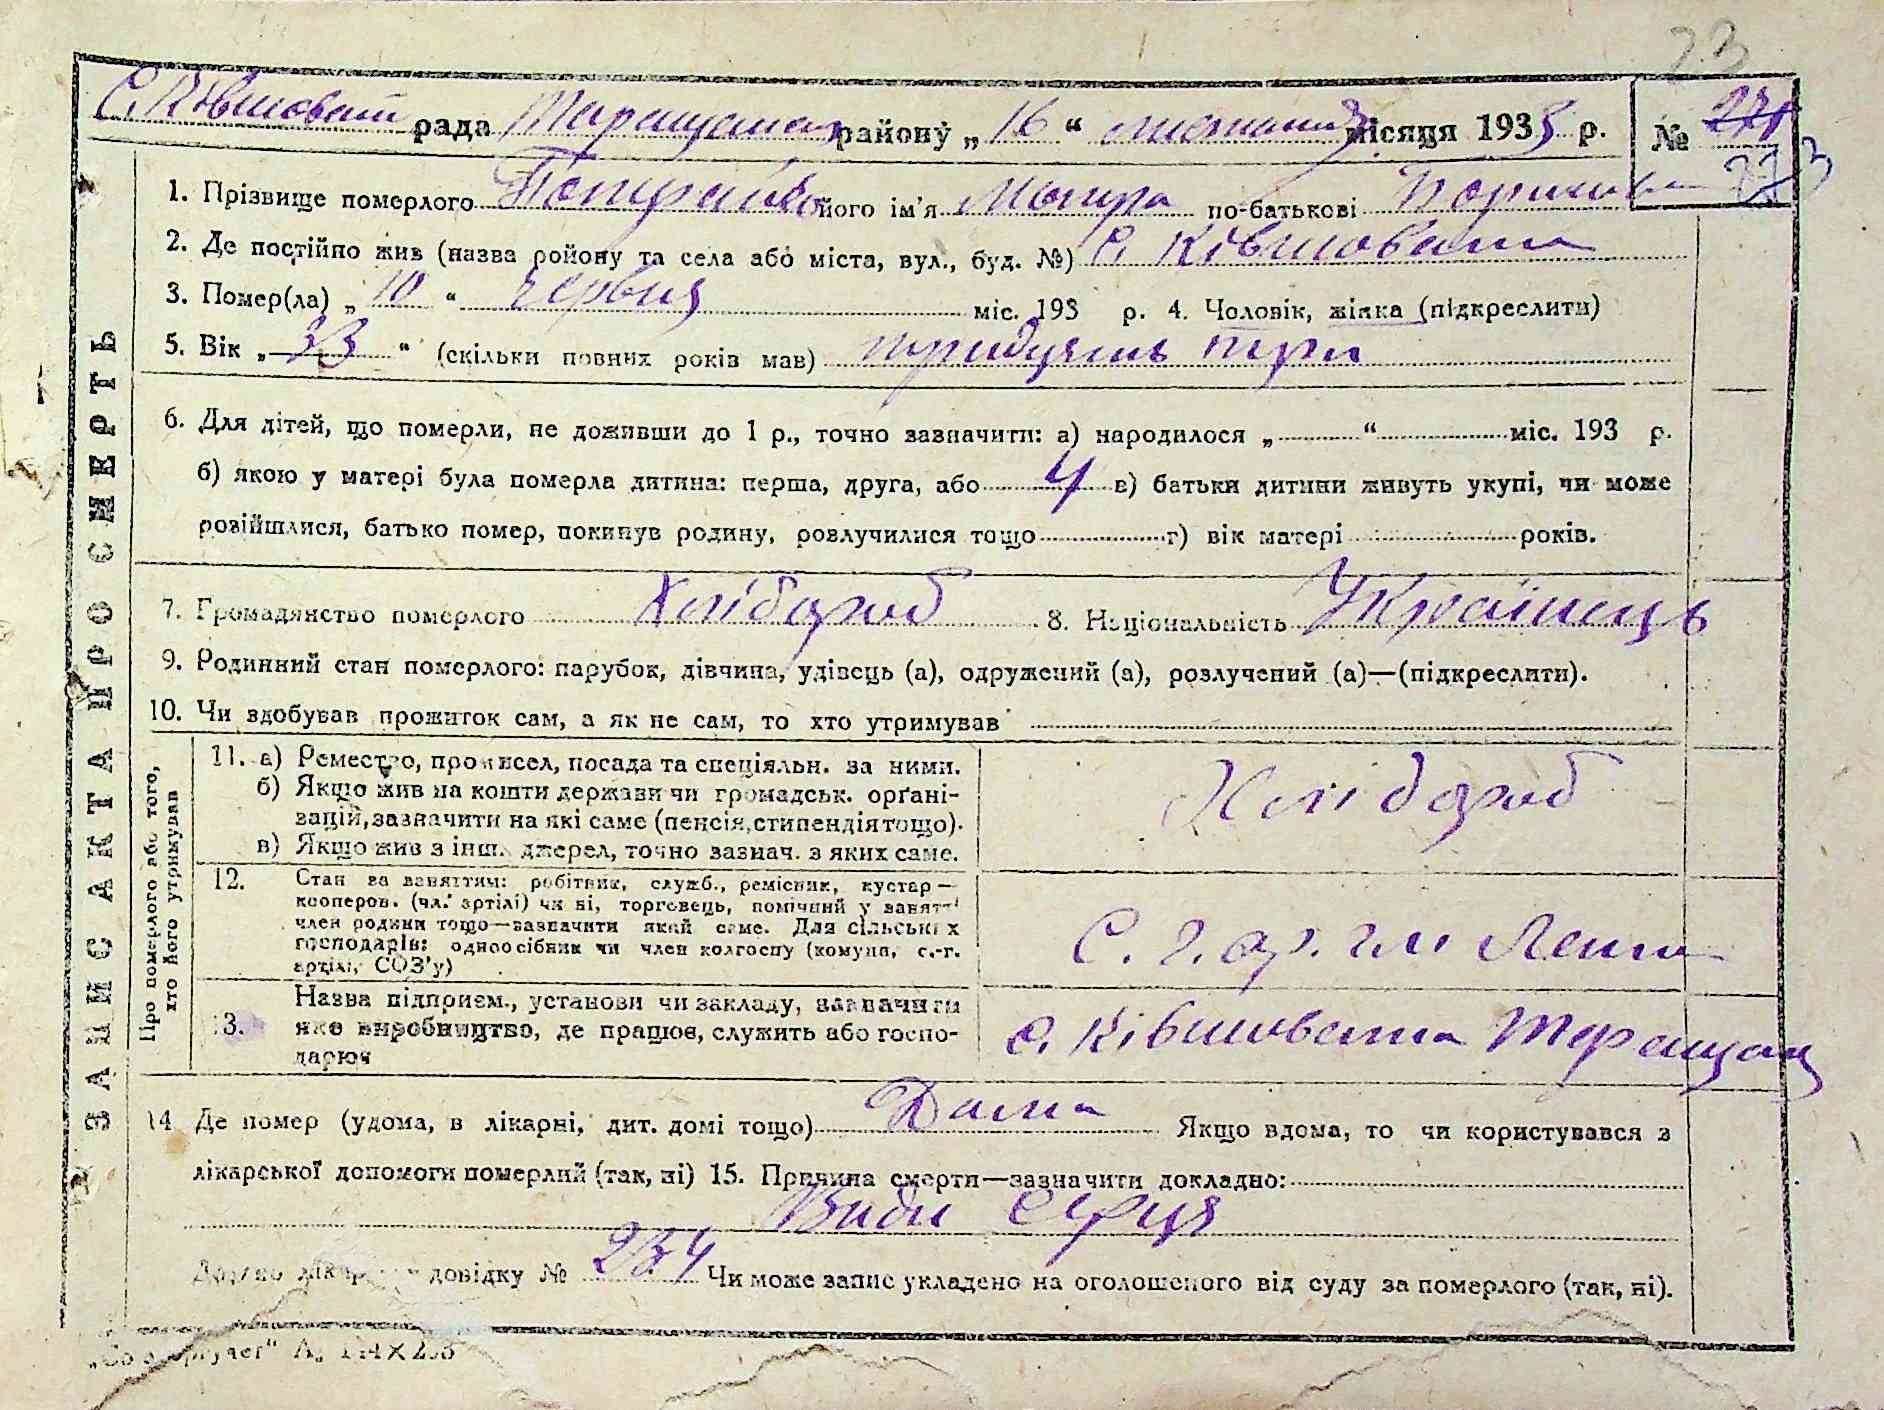 23
С. Ківшовати рада Таращанськ району „16“ листопада місяця 1935 р. № 271
273
1. Прізвище померлого його ім'я Мотря по-батькові
2. Де постійно жив (назва району та села або міста, вул., буд. №) с. Ківшовата
3. Помер(ла) „10“ червня міс. 193 р. 4. Чоловік, жінка (підкреслити)
5. Вік „33“ (скільки повних років мав) тридцять три
6. Для дітей, що померли, не доживши до 1 р., точно зазначити: а) народилося „ “ міс. 193 р.
б) якою у матері була померла дитина: перша, друга, або 4 в) батьки дитини живуть укупі, чи може
розійшлися, батько помер, покинув родину, розлучилися тощо г) вік матері років.
7. Громадянство померлого Хлібороб 8. Національність Українець
9. Родинний стан померлого: парубок, дівчина, удівець (а), одружений (а), розлучений (а)—(підкреслити).
10. Чи здобував прожиток сам, а як не сам, то хто утримував
ЗАПИС АКТА ПРО СМЕРТЬ
Про померлого або того,
хто його утримував
11. а) Ремество, промисел, посада та спеціяльн. за ними.
б) Якщо жив на кошти держави чи громадськ. орґані-
зацій, зазначити на які саме (пенсія, стипендія тощо).
в) Якщо жив з інш. джерел, точно зазнач. з яких саме.
Хлібороб
12. Стан за заняттям: робітник, служб., ремісник, кустар—
кооперов. (чл. артілі) чи ні, торговець, помічний у занятті
член родини тощо—зазначити який саме. Для сільських
господарів: одноосібник чи член колгоспу (комуна, с.-г.
артіль, СОЗ'у)
С. г. ар. ім Леніна
13. Назва підприєм., установи чи закладу, зазначити
яке виробництво, де працює, служить або госпо-
дарює
с. Ківшовата Таращан
14 Де помер (удома, в лікарні, дит. домі тощо) Дома Якщо вдома, то чи користувався з
лікарської допомоги померлий (так, ні) 15. Причина смерти—зазначити докладно:
серця
довідку № 234 Чи може запис укладено на оголошеного від суду за померлого (так, ні).